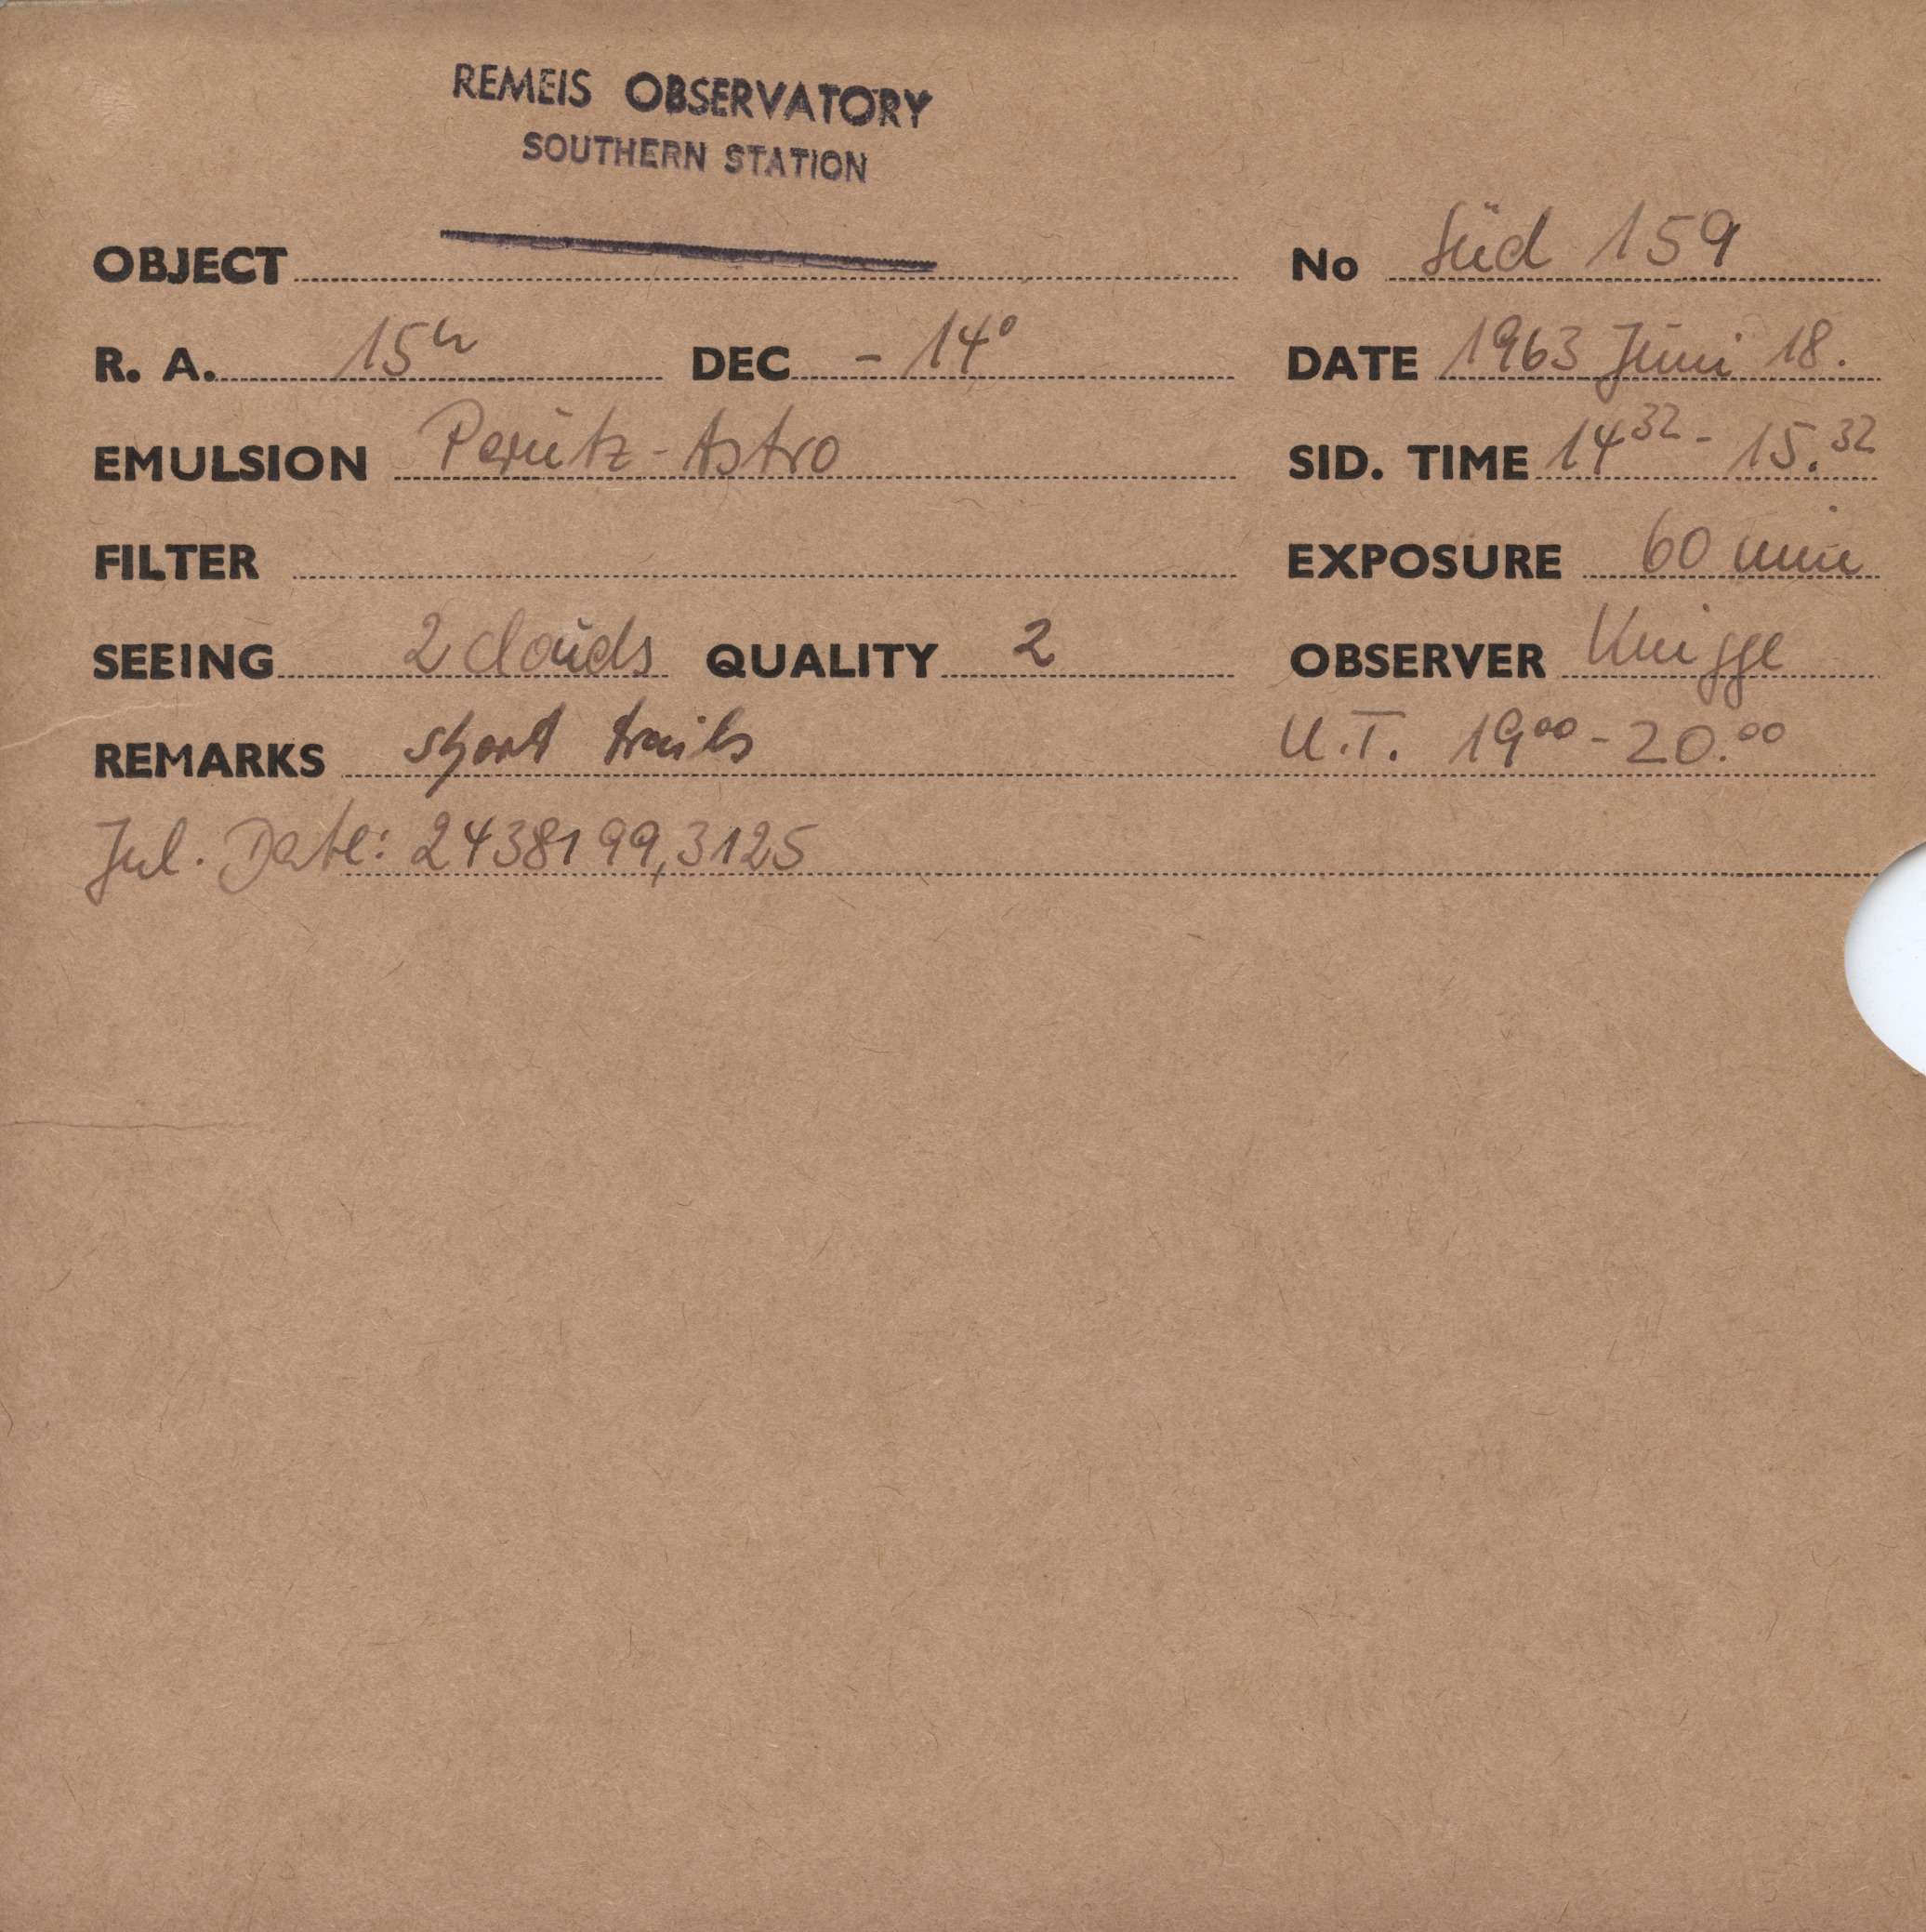 REMEIS OBSERVATORY
SOUTHERN STATION
OBJECT No Süd 159
R. A. 15h DEC - 14° DATE 1963 Juni 18.
EMULSION Perutz-Astro SID. TIME 14 32 - 15. 32
FILTER EXPOSURE 60 min
SEEING 2 clouds QUALITY 2 OBSERVER Knigge
REMARKS short trails U.T. 19 00 - 20. 00
Jul. Date: 2438199,3125